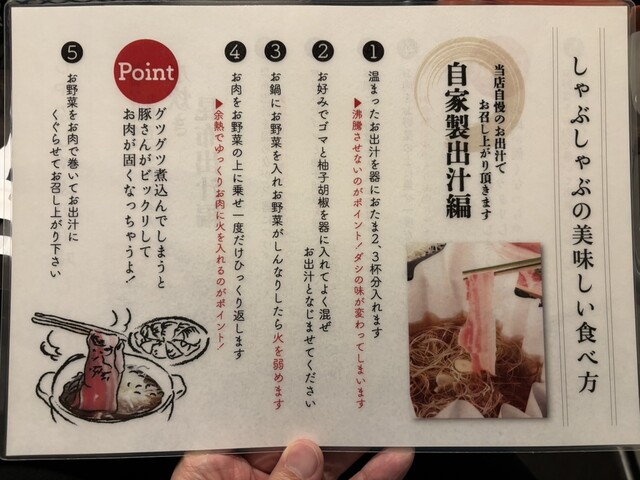 しゃぶしゃぶの美味しい食べ方
当店自慢のお出汁で
お召し上がり頂きます
自家製出汁編
1 温まったお出汁を器におたま2、3杯分入れます
▶沸騰させないのがポイント！ダシの味が変わってしまいます
2 お好みでゴマと柚子胡椒を器に入れてよく混ぜ
お出汁となじませてください
3 お鍋にお野菜を入れお野菜がしんなりしたら火を弱めます
4 お肉をお野菜の上に乗せ一度だけひっくり返します
▶余熱でゆっくりお肉に火を入れるのがポイント！
Point
グツグツ煮込んでしまうと
豚さんがビックリして
お肉が固くなっちゃうよ！
5 お野菜をお肉で巻いてお出汁に
くぐらせてお召し上がり下さい